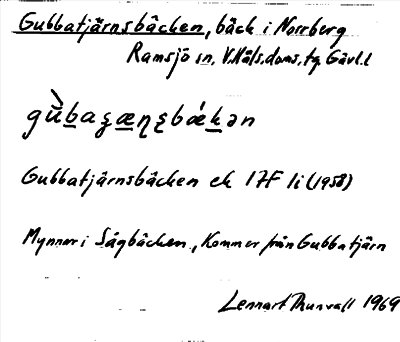 Gubbatjärnsbäcken, bäck i Norrberg
Ramsjö sn, V.Häls. doms. tg Gävl. l
gùbaʒæɳʂbǽkən
Gubbatjärnsbäcken ek 17F 1i (1958)
Mynnar i Sågbäcken, Kommer från Gubbatjärn
Lennart Thunvall 1969